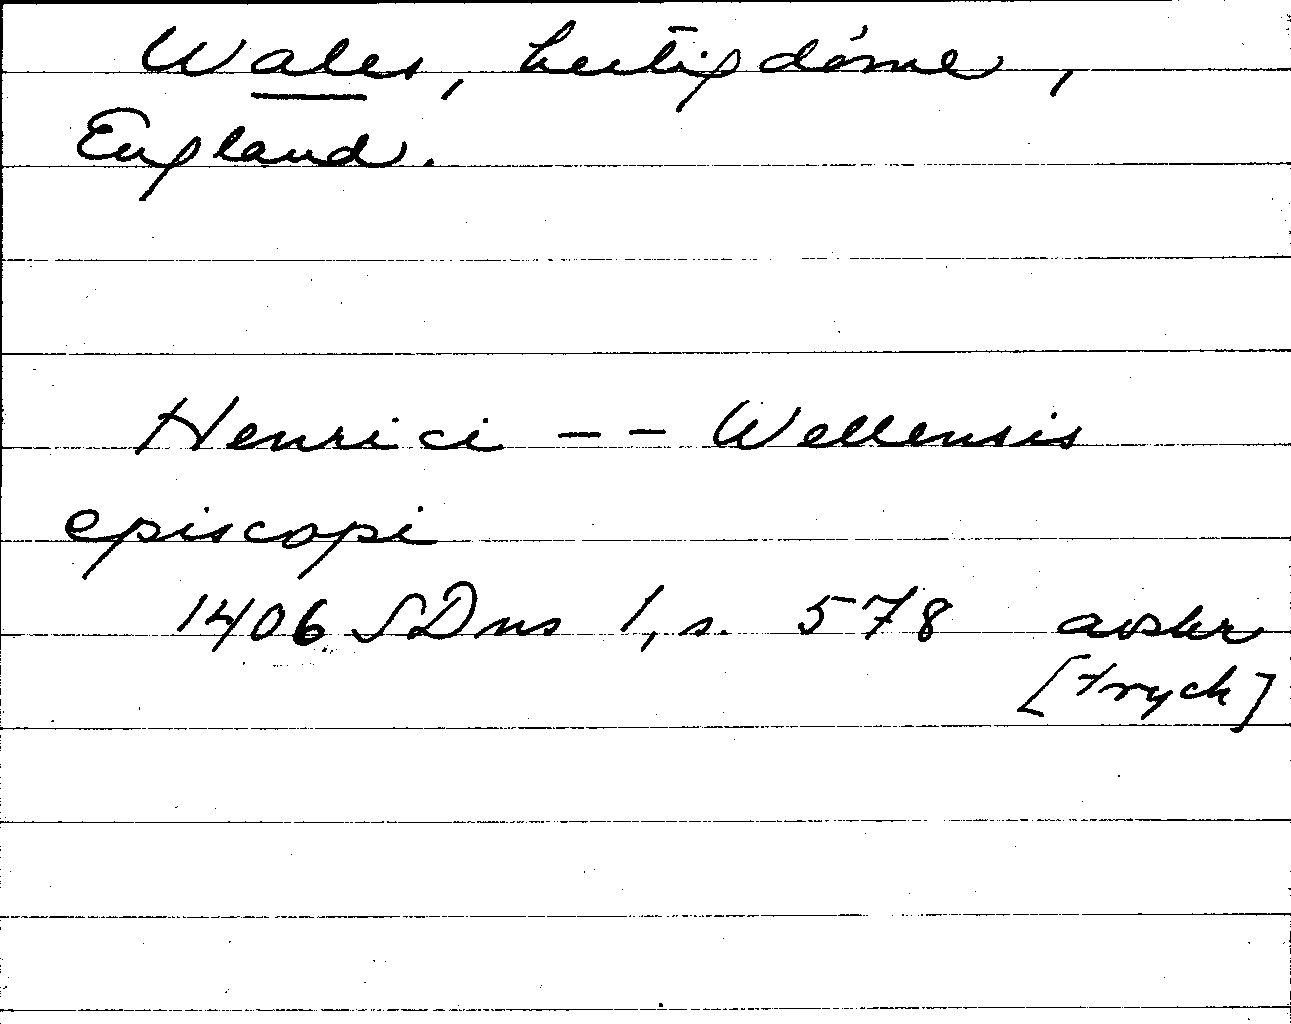 Wales, hertigdöme,
England.
Henrici -- Wellensis
episcopi
1406 SDns 1, s. 578 avskr
[tryck]